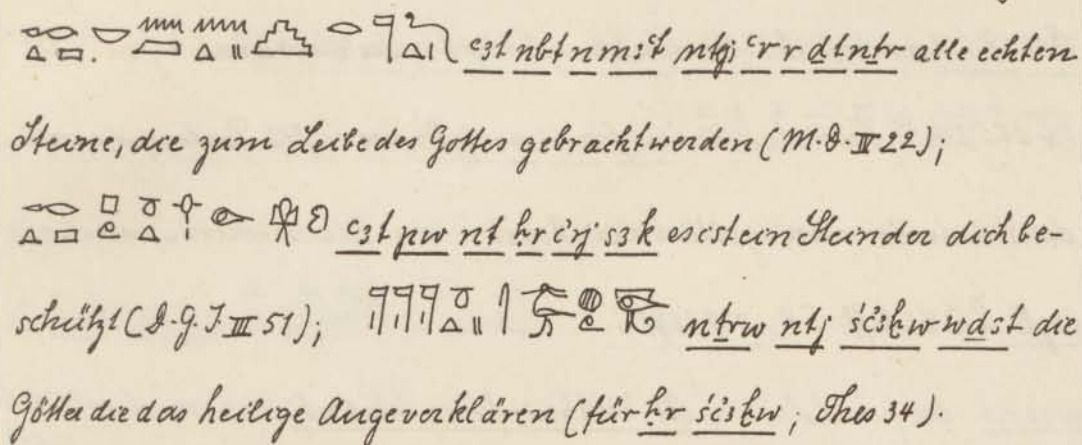 ꜥꜣt nbt n mꜣꜥt ntj ꜥr r ḏt nṯr alle echten
Steine, die zum Leibe des Gottes gebracht werden (M.D. III 22);
ꜥꜣt pw nt ḥr ỉrj sꜣ k es ist ein Stein der dich be-
schützt (D.G.J. III 51); nṯrw ntj śỉꜣḫw wḏꜣt die
Götter die das heilige Auge verklären (für ḥr śỉꜣḫw; Thes 34).